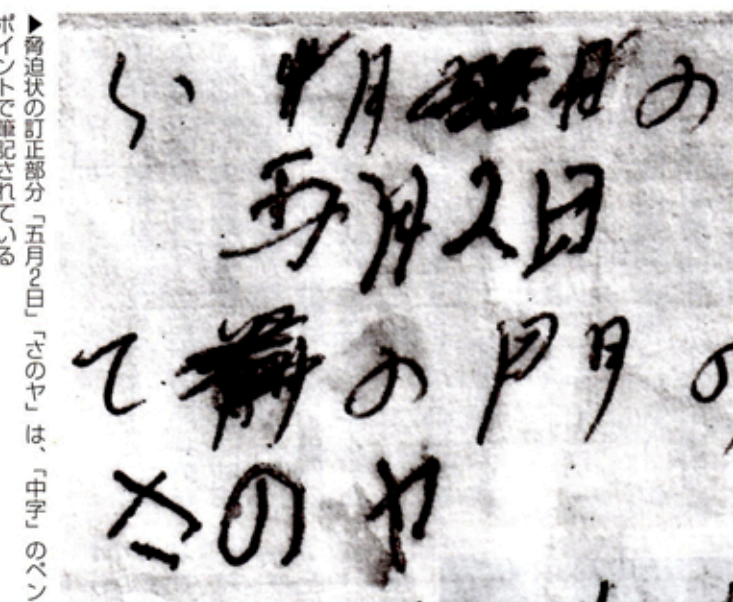 ▶脅迫状の訂正部分「五月2日」「さのヤ」は、「中字」のペン
ポイントで筆記されている
い 月 の
五月2日
て 前の門
さのヤ